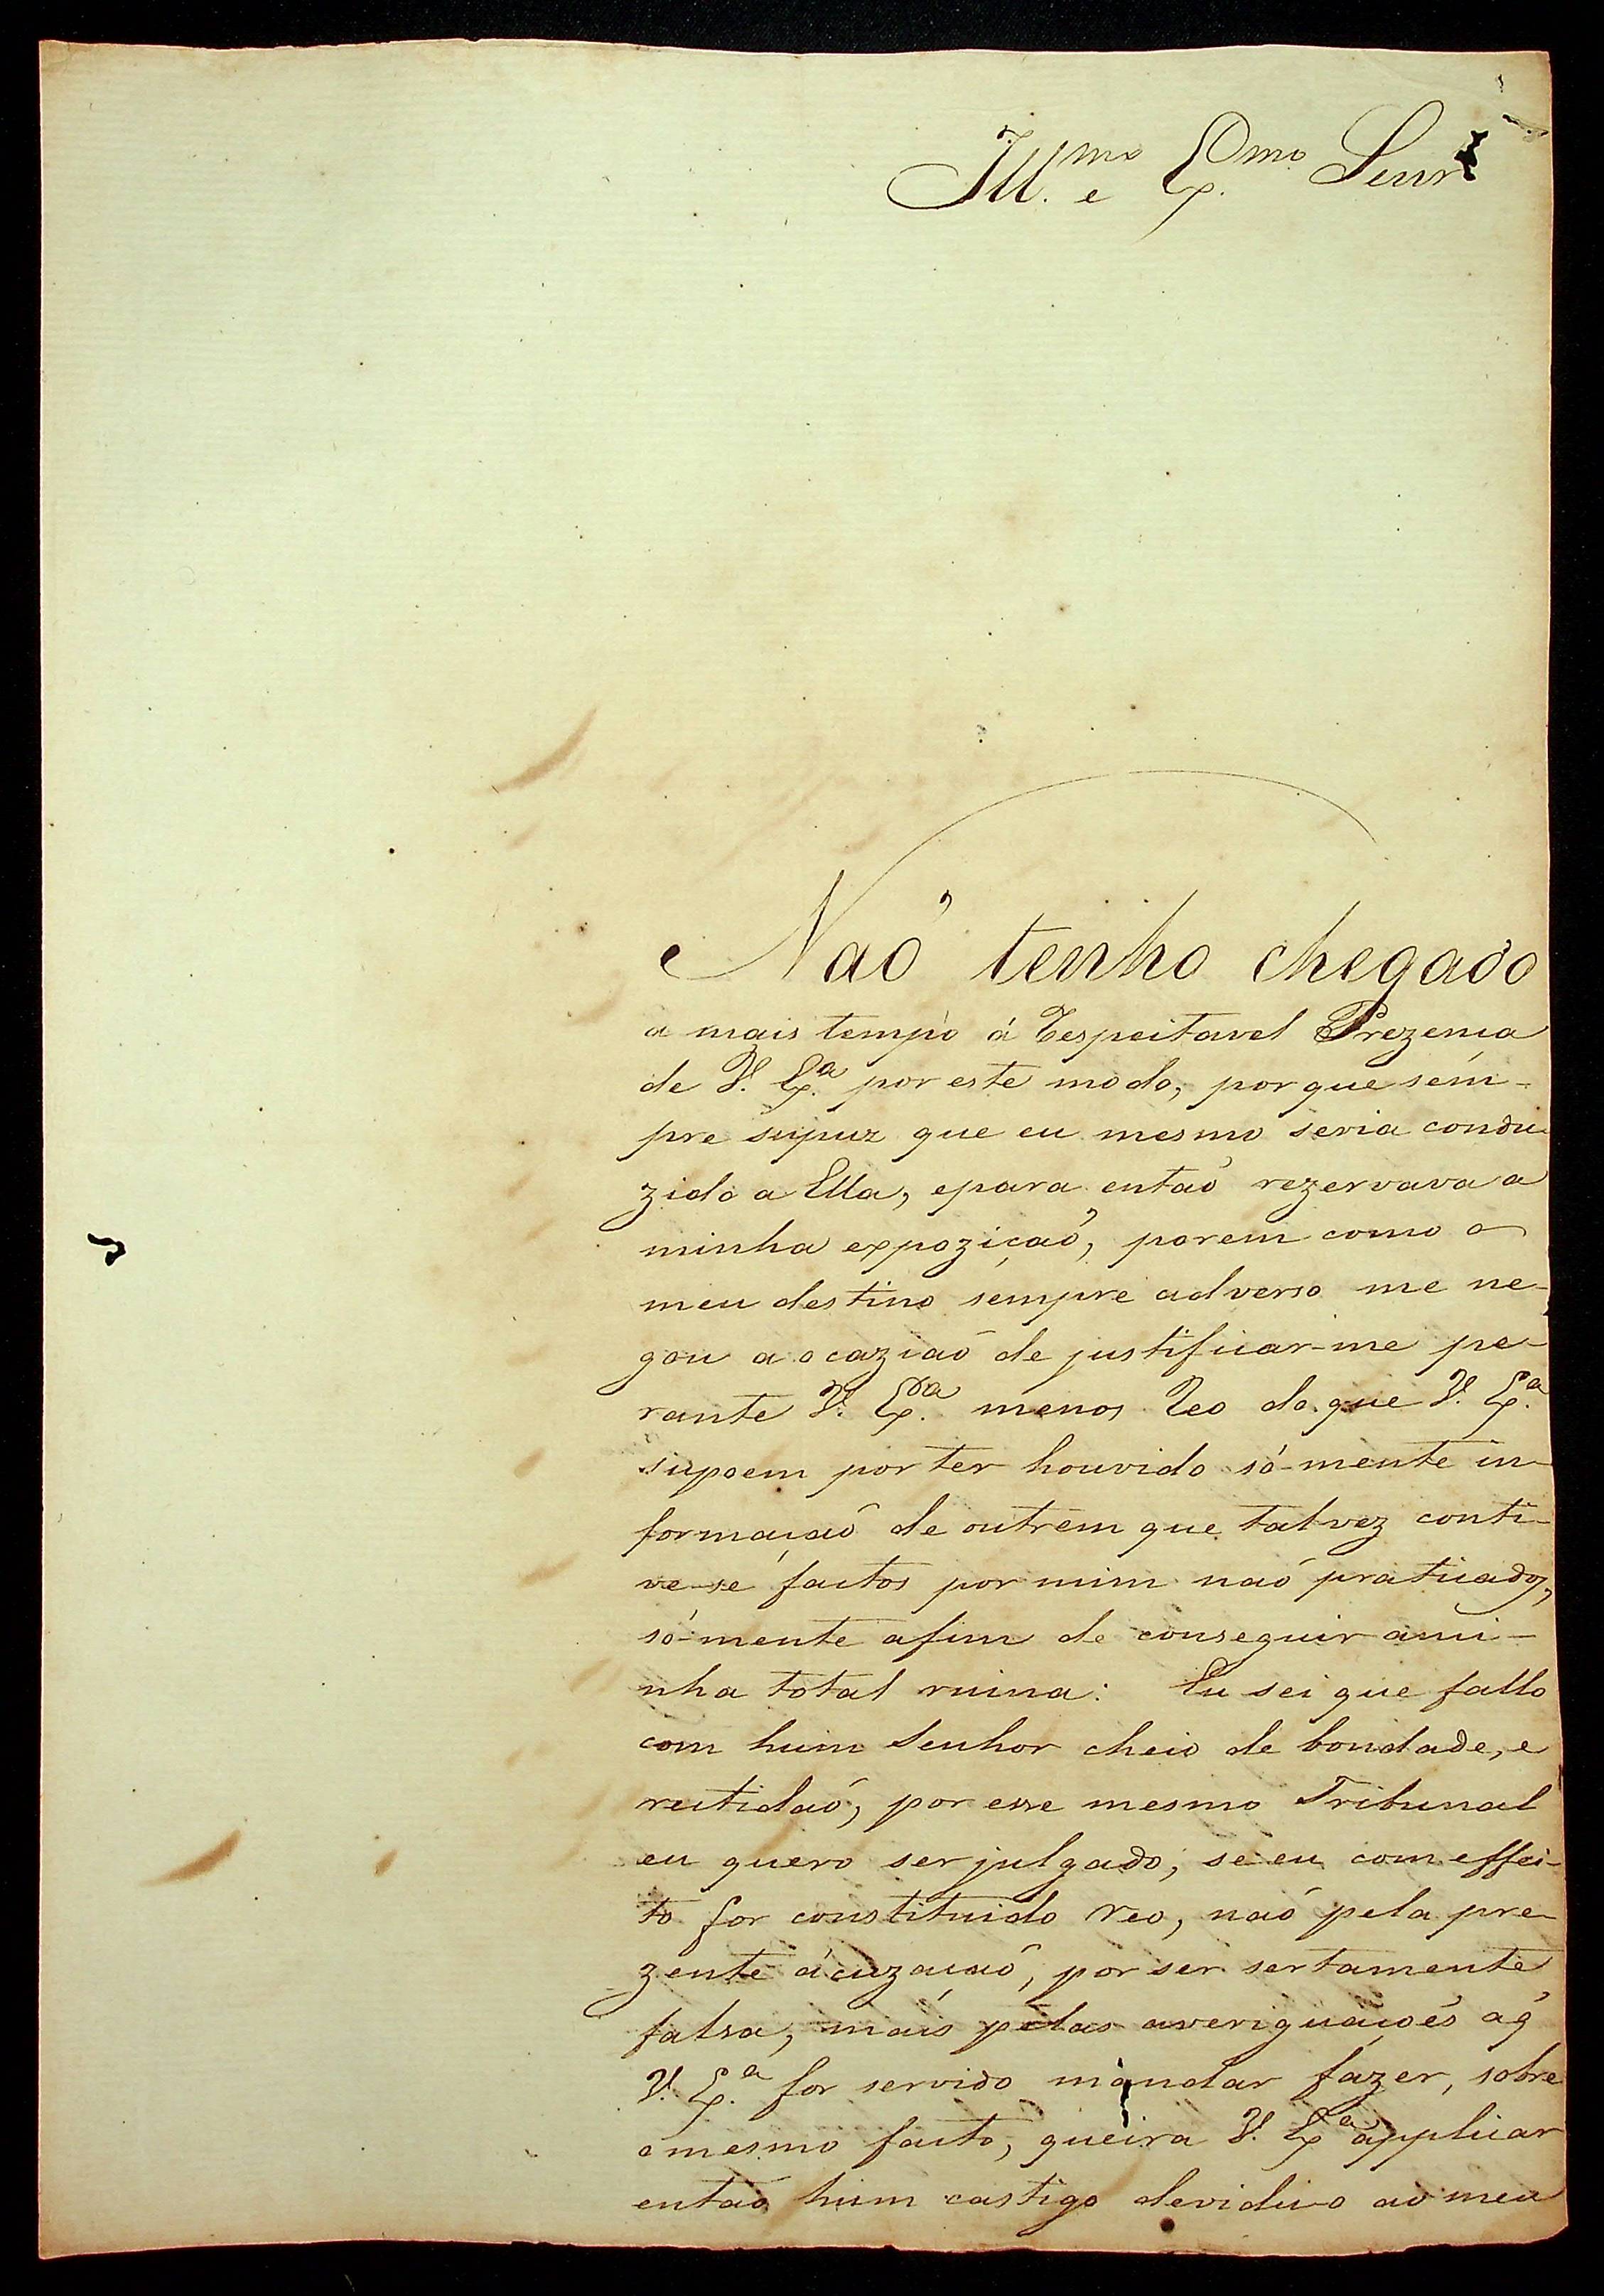 Ill.mo e Ex.mo Senr
Naõ tenho chegado
a mais tempo á Respeitavel Prezenca
de V. Ex.a por este modo, porque sem-
pre supuz que eu mesmo seria condu-
zido a Ella, epara entaõ rezervava a
minha expoziçaõ, porem como o
meu destino sempre adverso me ne-
gou a ocaziaõ de justificar-me pe-
rante V. Ex.a menos Reo do que V. Ex.a
supoem por ter houvido só-mente in-
formaçaõ de outrem que talvez conti-
ve-se factos por mim naõ praticados,
só-mente afim de conseguir ami-
nha total ruina: Eu sei que fallo
com hum Senhor cheio de bondade, e
rectidaõ, por esse mesmo Tribunal
eu quero ser julgado, se eu com effei-
to for constituido reo, naõ pela pre-
zente ácuzaçaõ, por ser sertamente
falsa, mais pelas averiguaçoẽs aq̃
V. Ex.a for servido mandar fazer, sobre
omesmo facto, queira V. Ex.a applicar
entaõ hum castigo ao meu